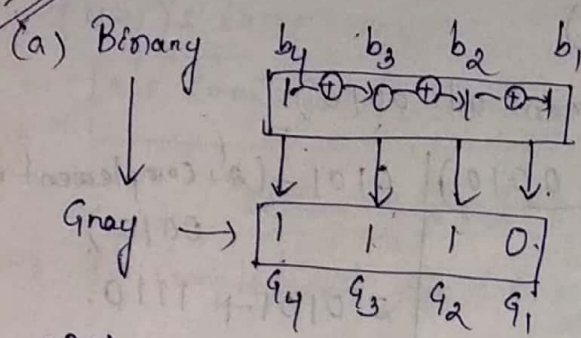 (a) Binary b4 b3 b2 b1
1 ⊕→ 0 ⊕→ 1 ⊕→ 1
Gray → 1 1 1 0.
G4 G3 G2 G1